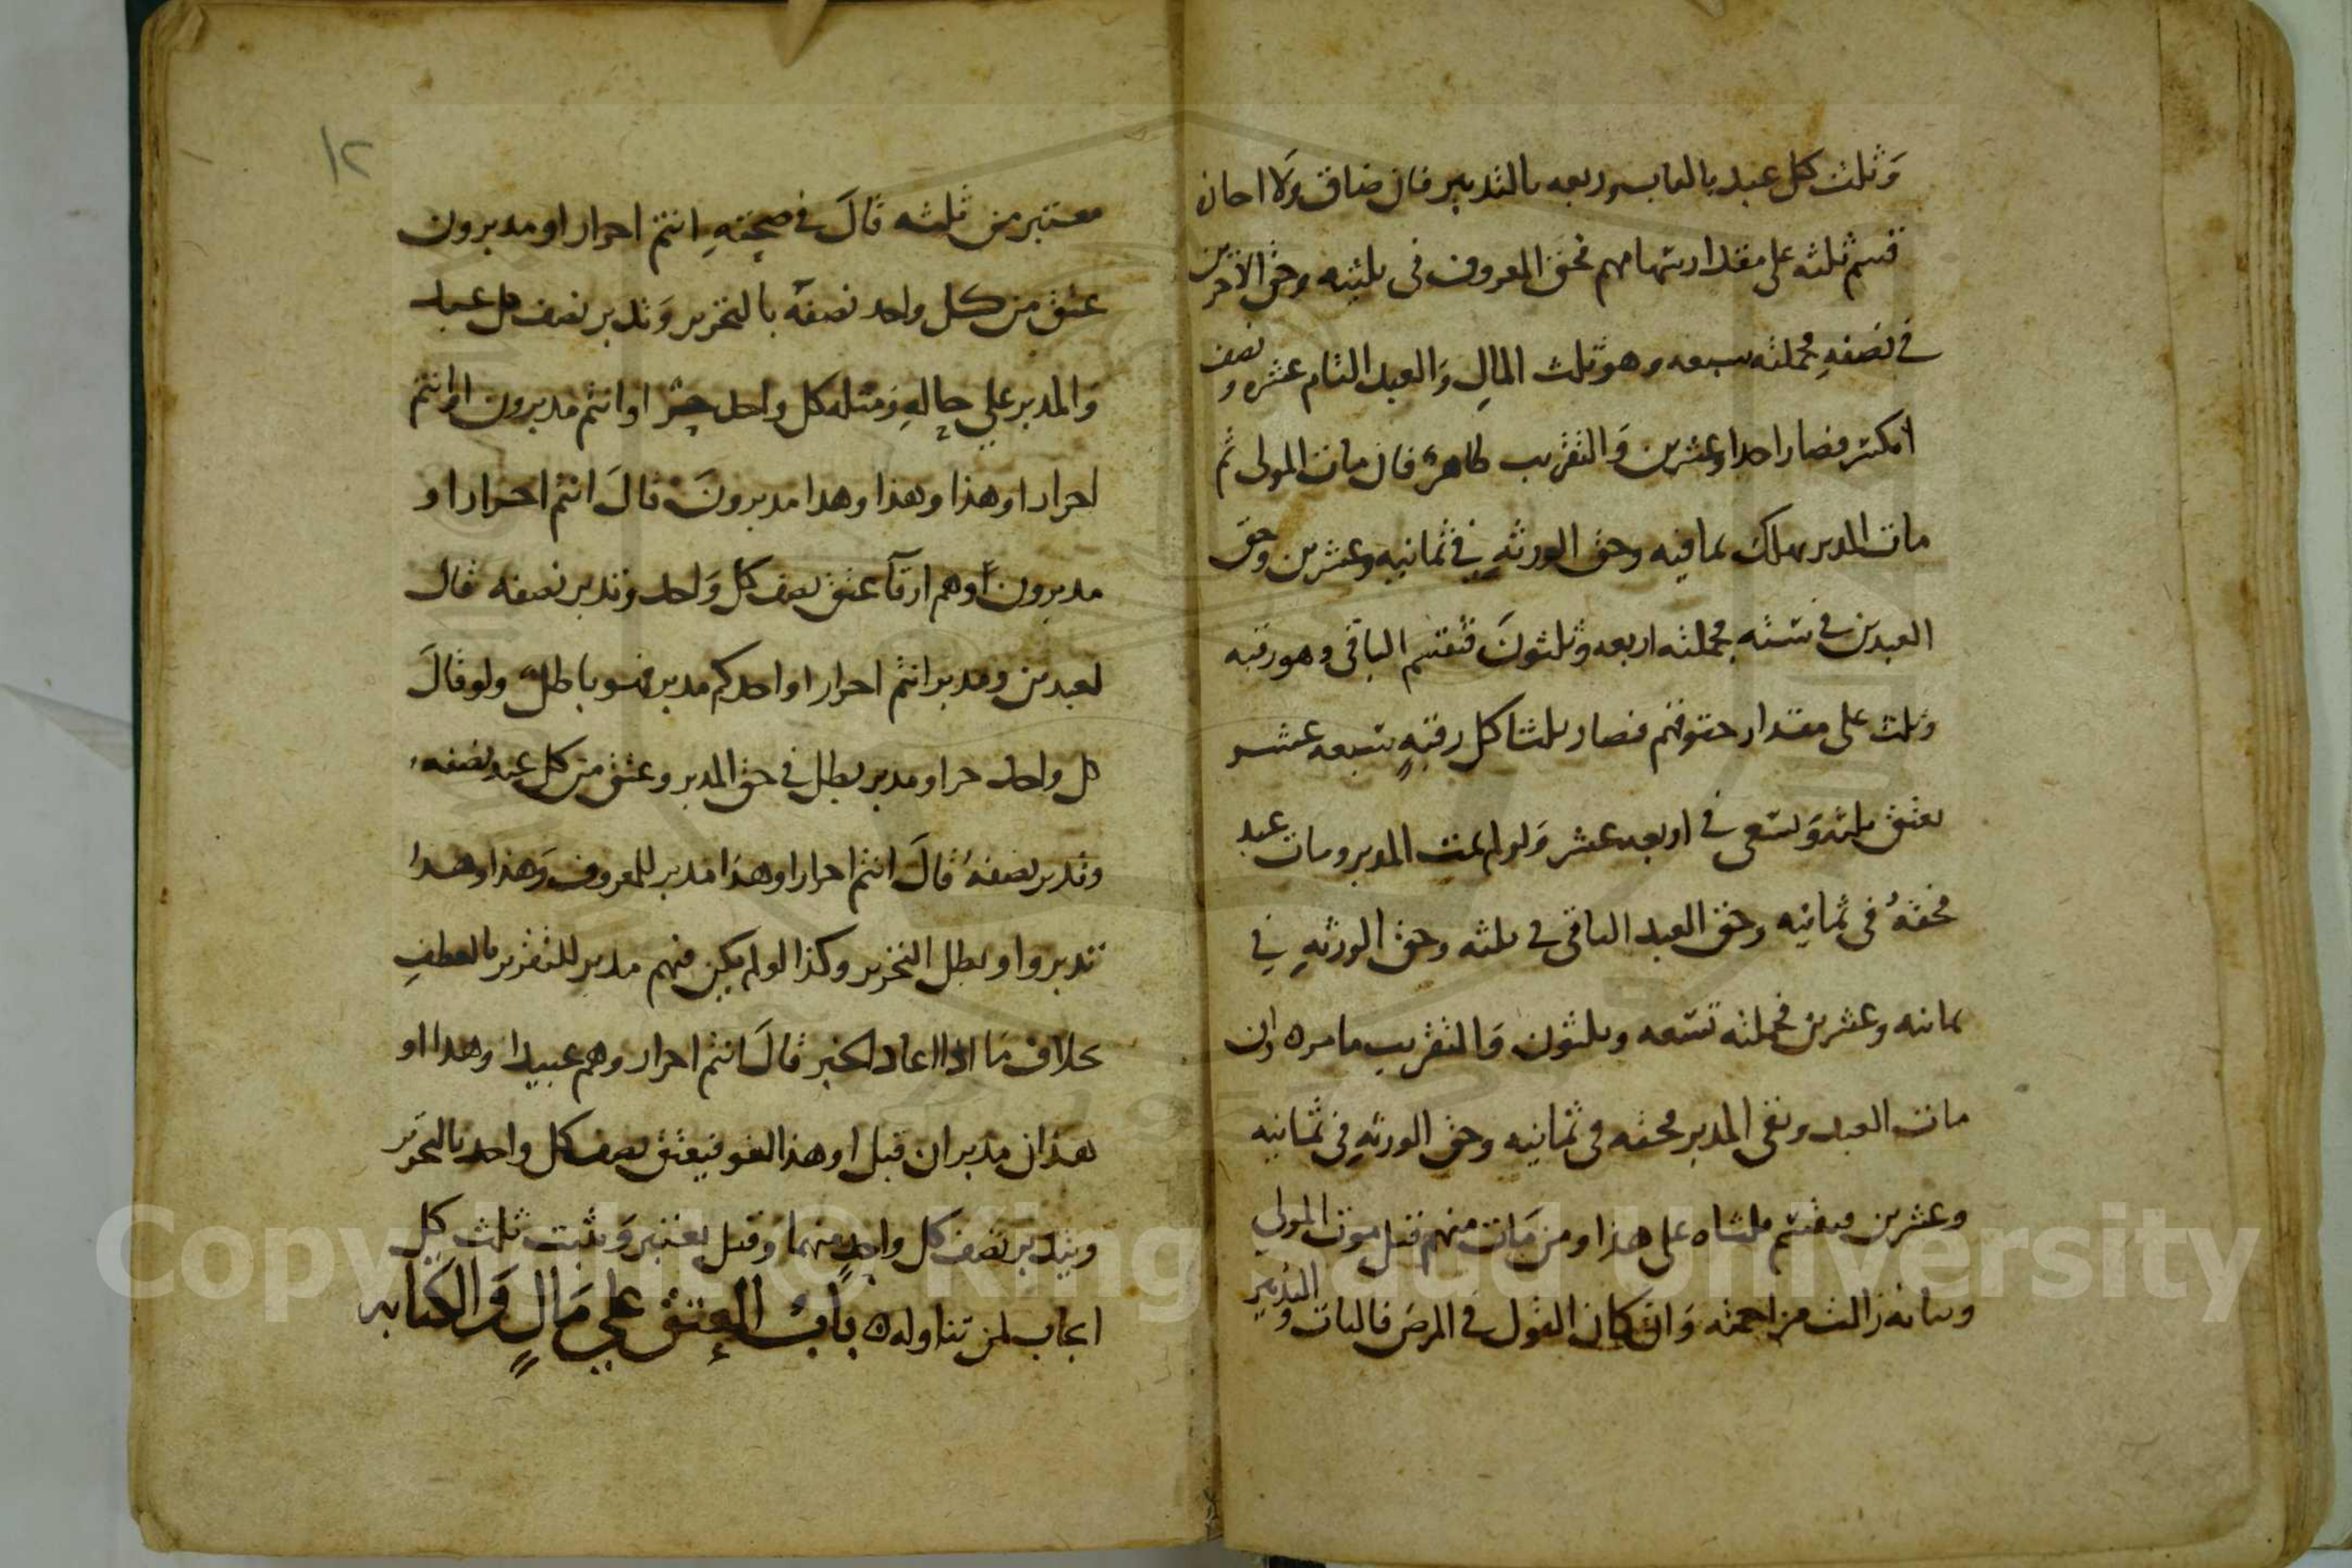 وثلث كل عبد بالباب وربعه بالتدبير فان ضاق ولا اجاز
قسم ثلثه على مقدار سهامهم فحق المعروف في ثلثيه وحق الاخرين
في نصفه فجملته سبعه وهو ثلث المال والعبد التام عشره ونصف
انكسر فصار احدا وعشرين والتقريب ظاهر فان مات المولى ثم
مات المدبر هلك بما فيه وحق الورثه في ثمانيه وعشرين وحق
العبدين في سته فجملته اربعه وثلثون فتقسم الباقي وهو رقبه
وثلث على مقدار حقوقهم فصار ثلثا كل رقبه سبعه عشر
يعتق ثلثه ويسعى في اربعه عشر ولو لم يمت المدبر ومات عبد
فحقه في ثمانيه وحق العبد الباقي في ثلثه وحق الورثه في
ثمانيه وعشرين فجملته تسعه وثلثون والتقريب ما مر وان
مات العبد وبقي المدبر فحقه في ثمانيه وحق الورثه في ثمانيه
وعشرين فيقسم ثلثاه على هذا ومن مات منهم قبل موت المولي
وبيانه زالت مزاحمته وان كان القول في المرض فالبات والتدبير
١٢
معتبر من ثلثه قال في صحته انتم احرار او مدبرون
عتق من كل واحد نصفه بالتحرير وتدبر نصف كل عبد
والمدبر علي حاله ومثله كل واحد حر او انتم مدبرون او انتم
احرار او هذا وهذا وهذا مدبرون قال انتم احرار او
مدبرون او هم ارقآ عتق نصف كل واحد وتدبر نصفه قال
لعبدين ومدبر انتم احرار او احدكم مدبر فهو باطل ولو قال
كل واحد حر او مدبر بطل في حق المدبر وعتق من كل عبد نصفه
وتدبر نصفه قال انتم احرار او هذا مدبر للمعروف وهذا وهذا
تدبروا وبطل التحرير وكذا لو لم يكن فيهم مدبر للتقرير بالعطف
بخلاف ما اذا اعاد الخبر قال انتم احرار وهم عبيد او هذا او
هذان مدبران قيل او هذا لغو فيعتق نصف كل واحد بالتحرير
ويتدبر نصف كل واحد منهما وقيل يعتبر ويثبت ثلث كل
ايجاب لمن تناوله باب العتق علي مال والكتابه
Copyright © King Saud University